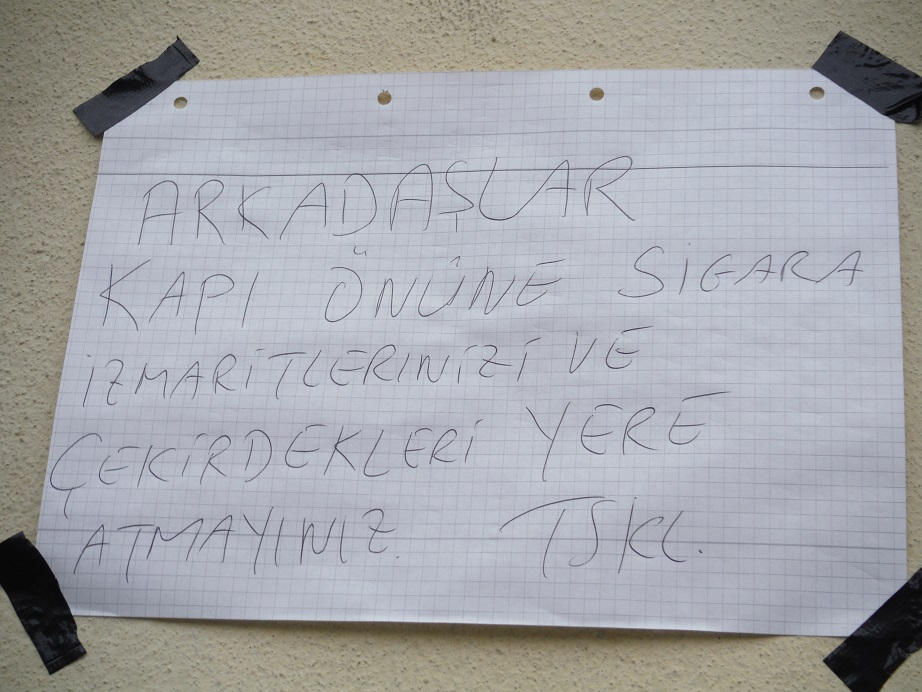 ARKADAŞLAR
KAPI ÖNÜNE SİGARA
İZMARİTLERİNİZİ VE
ÇEKİRDEKLERİ YERE
ATMAYINIZ. TŞKL.